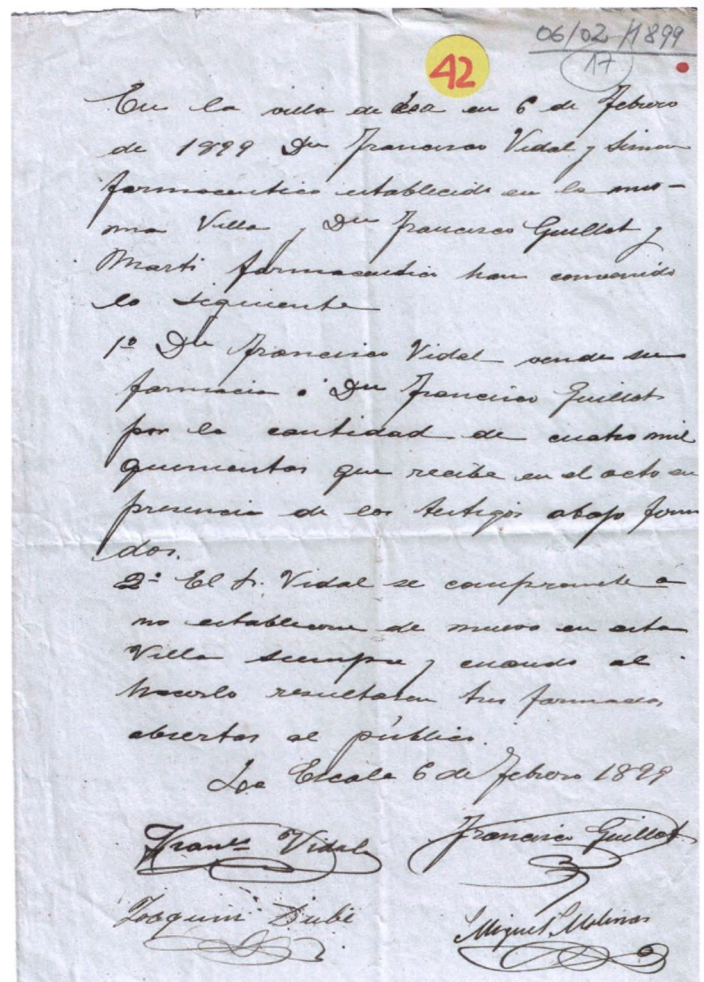 06/02/1899
17
42
En la villa de Esa en 6 de febrero
de 1899 Dn Francisco Vidal y Simon
farmaceutico establecido en la mis-
ma Villa y Dn Francisco Guillot y
Marti farmaceutico han convenido
lo siguiente
1º Dn Francisco Vidal vende su
farmacia a Dn Francisco Guillot
por la cantidad de cuatro mil
quinientas que recibe en el acto en
presencia de los testigos abajo firma
dos.
2º El Sr. Vidal se compromete a
no establecerse de nuevo en esta
Villa siempre y cuando al
hacerlo resultasen tres farmacias
abiertas al público.
La Escala 6 de febrero 1899
Franco Vidal
Francisco Guillot
Joaquin
Miguel Molinas